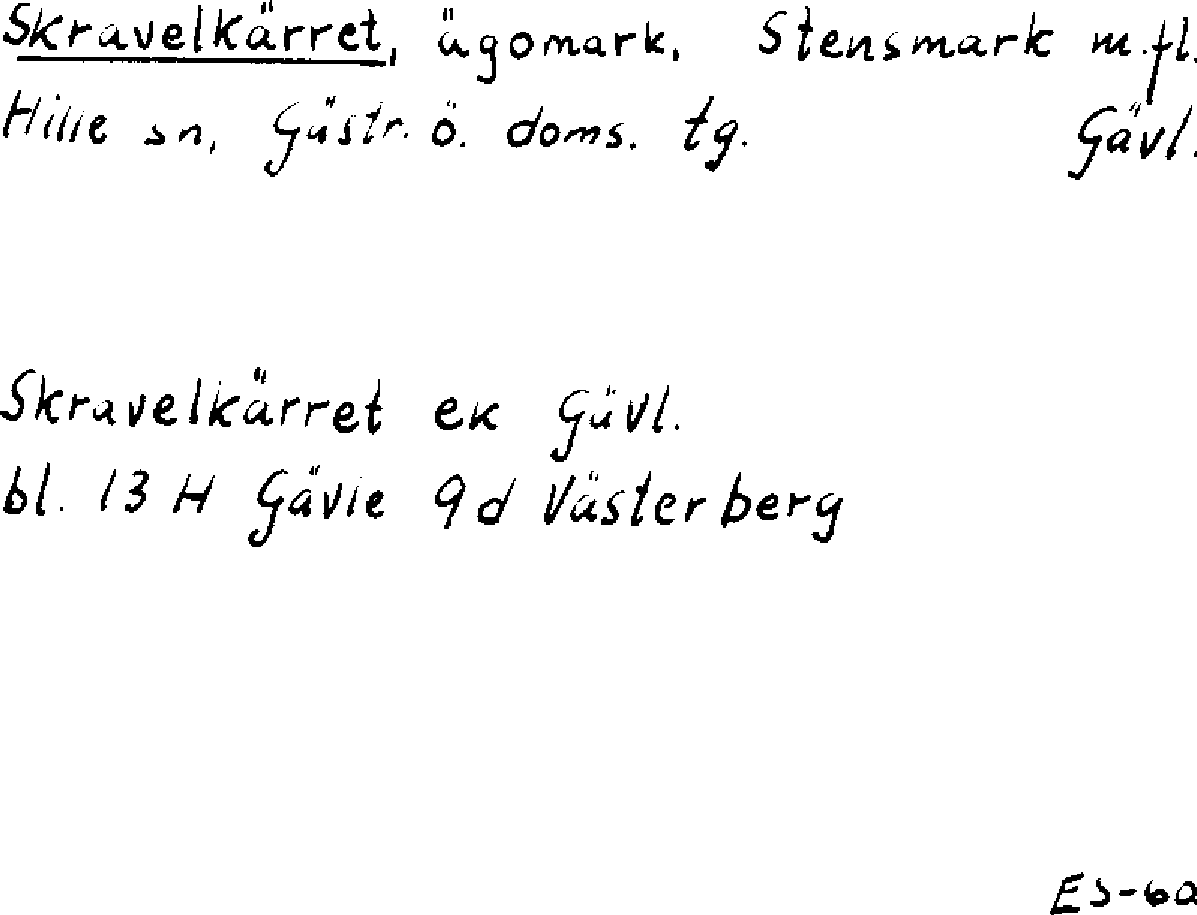 Skravelkärret, ägomark, Stensmark m.fl.
Hille sn, Gästr. ö. doms. tg. Gävl.
Skravelkärret ek Gävl.
bl. 13 H Gävle 9d Västerberg
ES-60